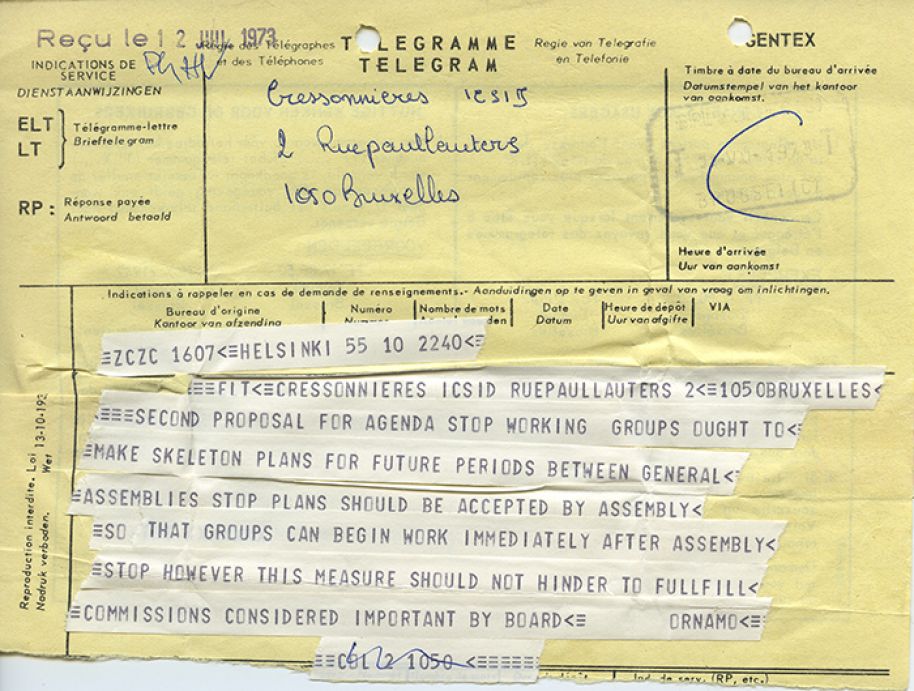 Reçu le 12 JUIL 1973
Régie des Télégraphes et des Téléphones
TELEGRAMME
TELEGRAM
Regie van Telegrafie en Telefonie
GENTEX
INDICATIONS DE SERVICE
DIENSTAANWIJZINGEN
ELT
LT
Télégramme-lettre
Brieftelegram
RP :
Réponse payée
Antwoord betaald
Cressonnieres ICSID
2 Ruepaullauters
1050 Bruxelles
Timbre à date du bureau d'arrivée
Datumstempel van het kantoor
van aankomst.
Heure d'arrivée
Uur van aankomst
Indications à rappeler en cas de demande de renseignements.- Aanduidingen op te geven in geval van vraag om inlichtingen.
Bureau d'origine
Kantoor van afzending
Numéro
Nombre de mots
Date
Datum
Heure de dépôt
Uur van afgifte
VIA
≡ZCZC 1607<≡HELSINKI 55 10 2240<≡
≡≡≡FIT<≡CRESSONNIERES ICSID RUEPAULLAUTERS 2<≡1050BRUXELLES<
≡≡≡SECOND PROPOSAL FOR AGENDA STOP WORKING GROUPS OUGHT TO<≡
≡MAKE SKELETON PLANS FOR FUTURE PERIODS BETWEEN GENERAL<≡
≡ASSEMBLIES STOP PLANS SHOULD BE ACCEPTED BY ASSEMBLY<≡
≡SO THAT GROUPS CAN BEGIN WORK IMMEDIATELY AFTER ASSEMBLY<
≡STOP HOWEVER THIS MEASURE SHOULD NOT HINDER TO FULLFILL<≡
≡COMMISSIONS CONSIDERED IMPORTANT BY BOARD<≡ ORNAMO<≡
≡≡COL 2 1050 <≡≡≡≡≡
Reproduction interdite. Loi 13-10-193
Nadruk verboden. Wet
Ind. de serv. (RP, etc.)